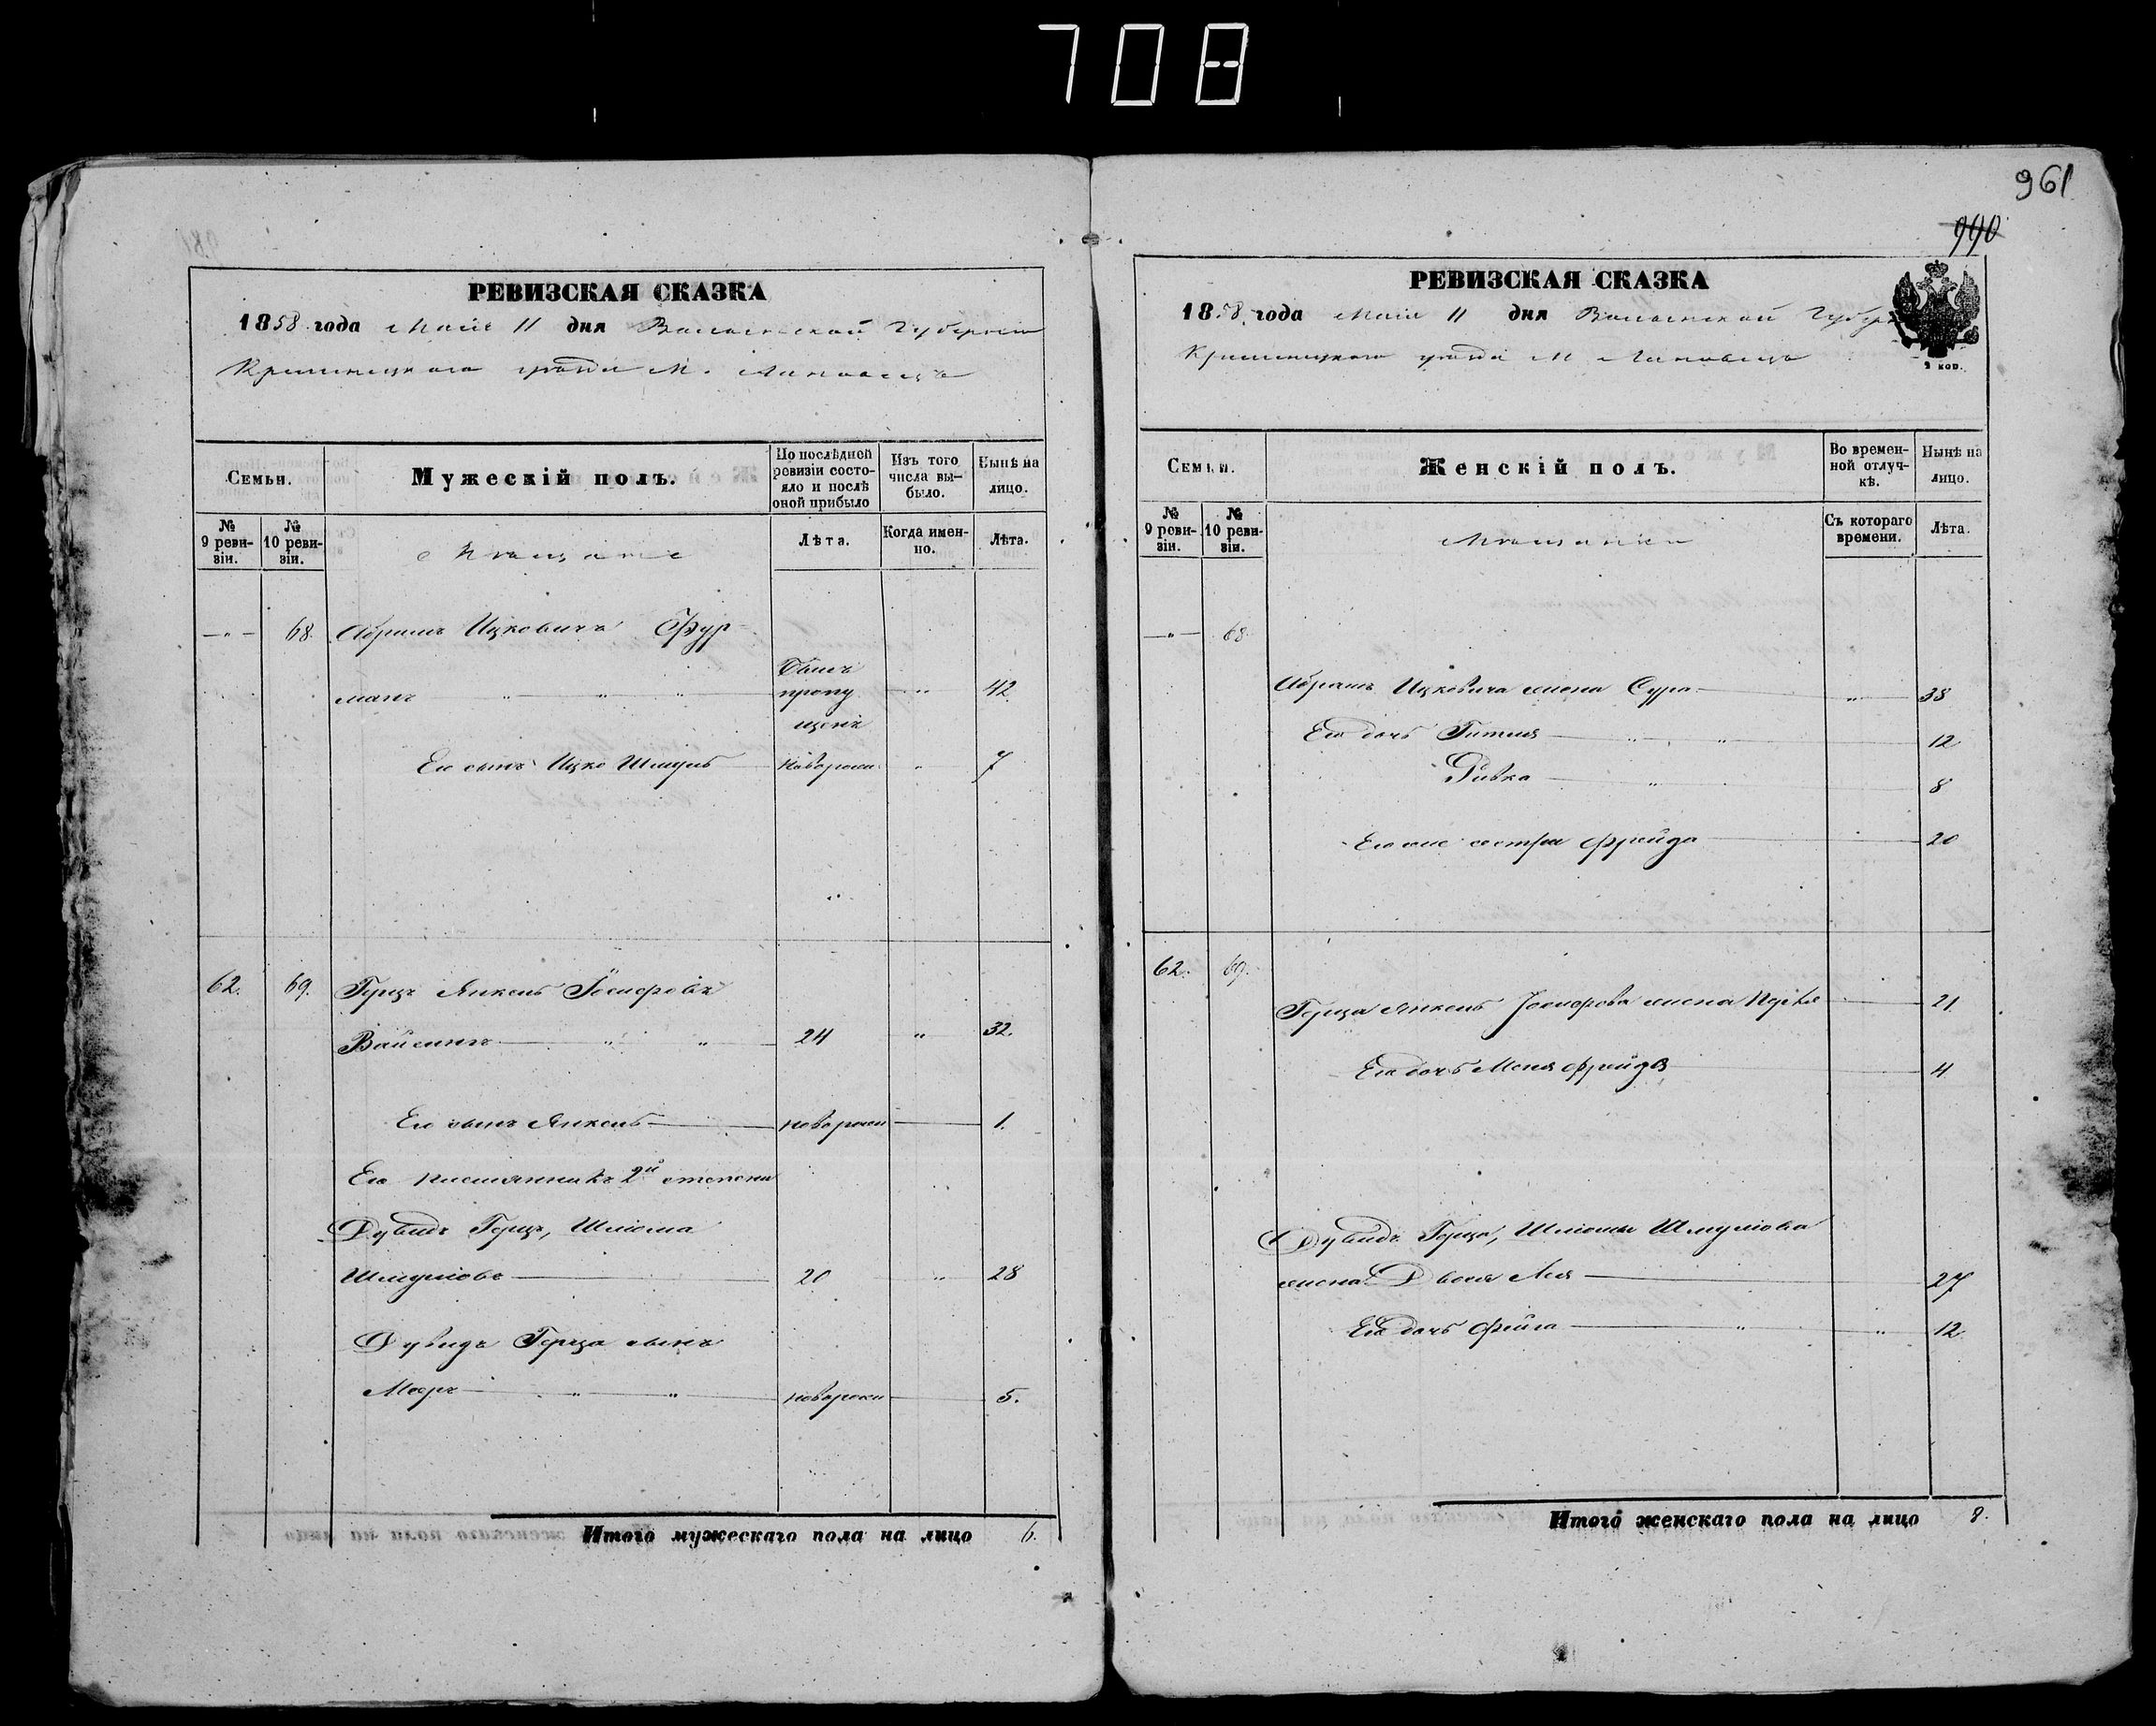 708
961
990
РЕВИЗСКАЯ СКАЗКА
1858 года Маія 11 дня Волынской Губерніи
Кременецкого уезда М. Лановецъ
Семьи.
Мужескій полъ.
По послѣдней ревизіи состо-
яло и послѣ
оной прибыло
Изъ того
числа вы-
было.
Нынѣ на
лицо.
№
9 реви-
зіи.
№
10 реви-
зіи.
Мещане
Лѣта.
Когда имен-
но.
Лѣта.
— „ — 68. Абрамъ Ицковичъ Фур-
манъ „ „ „ былъ
пропу
щенъ „ 42
Его сынъ Ицко Шмуль новорожд „ 7
62. 69. Герцъ Янкель Іосифовъ
Вайсманъ „ „ 24 „ 32.
Его сынъ Янкель новорожд 1.
Его племянникъ 2й степени
Дувидъ Герцъ, Шлиома
Шмуліовъ 20 „ 28
Дувидъ Герца сынъ
Мееръ „ „ новорожд 5.
Итого мужескаго пола на лицо 6.
РЕВИЗСКАЯ СКАЗКА
1858 года Маія 11 дня Волынской Губерн
Кременецкого уезда М Лановецъ
2 коп.
Семьи.
Женскій полъ.
Во времен-
ной отлуч-
кѣ.
Нынѣ на
лицо.
№
9 реви-
зіи.
№
10 реви-
зіи.
Мещанки
Съ котораго
времени.
Лѣта.
— „ — 68
Абрама Ицковича жена Сура „ 38
Его дочь Гитля „ „ 12
Ривка „ 8
Его же сестра Фрейда 20
62. 69.
Герца Янкель Іосифова жена 21
Его дочь Меня Фрейда 4
Дувидъ Герца, Шлиомы Шмуліова
жена Двося Лея 27
Его дочь Фейга „ „ 12
Итого женскаго пола на лицо 8.